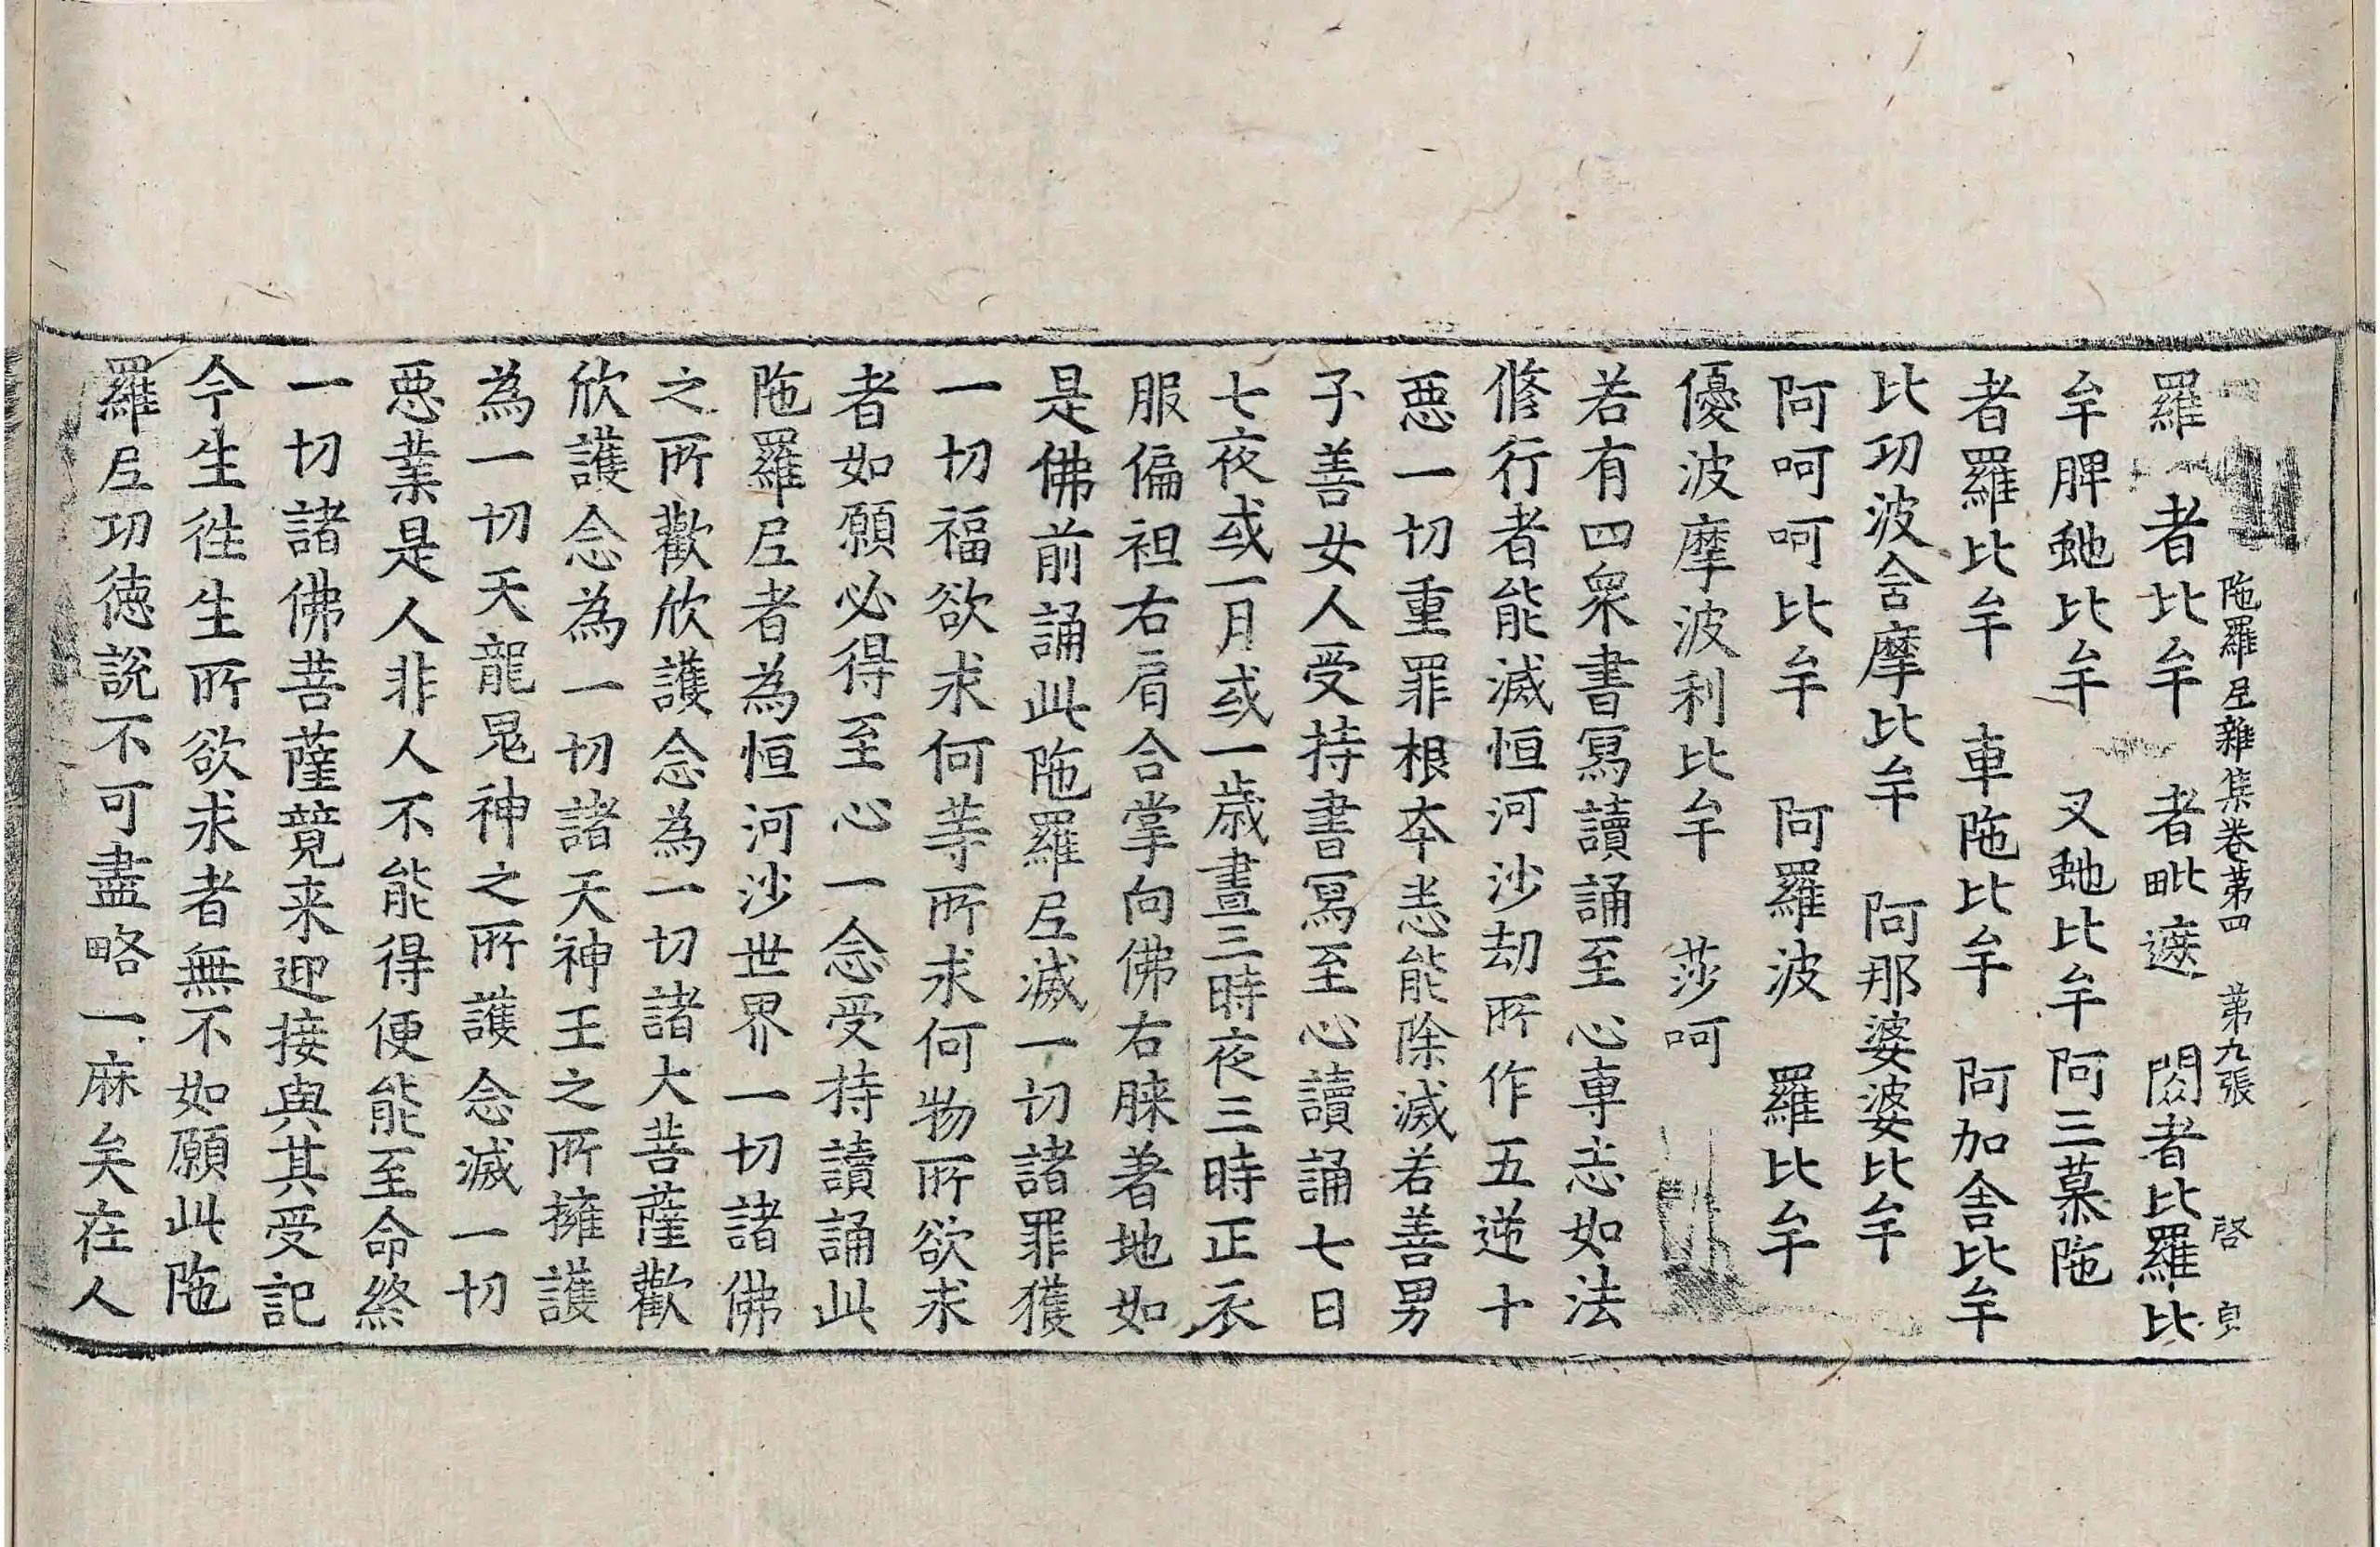 陁羅𡰱雜集卷第四 第九張 啓 貞
羅 者比牟 者毗遮 閦者比羅比
牟脾虵比牟 叉虵比牟 阿三慕陁
者羅比牟 車陁比牟 阿加舍比牟
比㓛波舍摩比牟 阿那婆婆比牟
阿呵呵比牟 阿羅波 羅比牟
優波摩波利比牟 莎呵
若有四衆書冩讀誦至心專志如法
修行者能滅恒河沙劫所作五逆十
惡一切重罪根本悉能除滅若善男
子善女人受持書冩至心讀誦七日
七夜或一月或一歲晝三時夜三時正衣
服偏袒右肩合掌向佛右膝著地如
是佛前誦此陁羅𡰱滅一切諸罪獲
一切福欲求何䓁所求何物所欲求
者如願必得至心一念受持讀誦此
陁羅𡰱者為恒河沙世界一切諸佛
之所歡欣護念為一切諸大菩薩歡
欣護念為一切諸天神王之所擁護
為一切天龍鬼神之所護念滅一切
惡業是人非人不能得便能至命終
一切諸佛菩薩競来迎接與其受記
今生徃生所欲求者無不如願此陁
羅𡰱㓛徳說不可盡略一麻矣在人